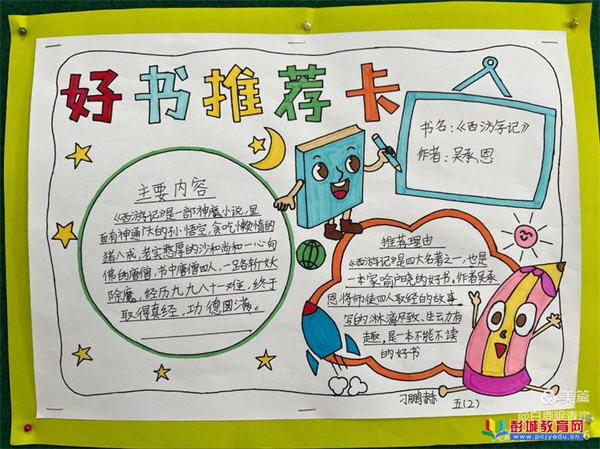 好书推荐卡
书名:《西游记》
作者:吴承恩
主要内容
《西游记》是一部神魔小说,里
面有神通广大的孙悟空,贪吃懒惰的
猪八戒,老实憨厚的沙和尚和一心向
佛的唐僧,书中唐僧四人,一路斩妖
除魔,经历九九八十一难,终于
取得真经,功德圆满。
推荐理由
《西游记》是四大名著之一,也是
一本家喻户晓的好书,作者吴承
恩将师徒四人取经的故事
写的淋漓尽致、生动有
趣,是一本不能不读
的好书
刁鹏
五(2)
美篇
@白鹿眠青崖
彭城教育网
www.pcjyedu.cn